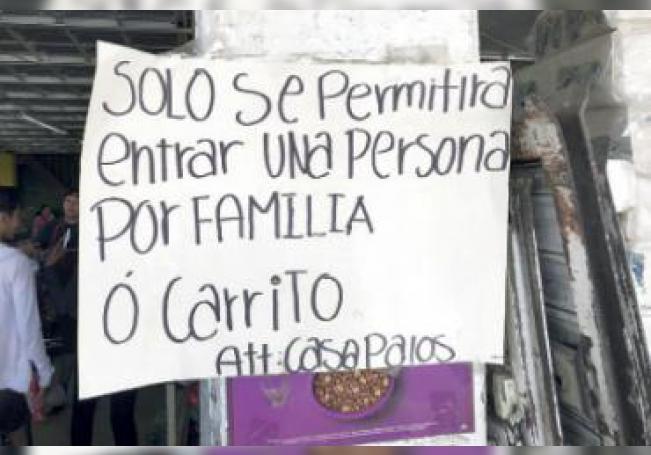 SOLO Se Permitira
entrar UNa Persona
Por FAMILIA
Ó CarriTO
Att: Casa Palos